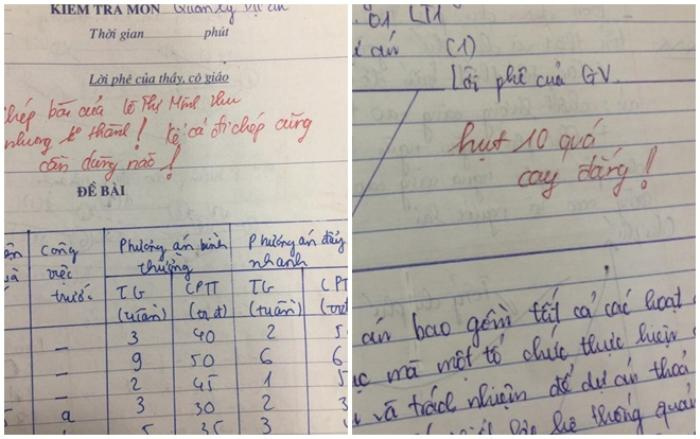 KIỂM TRA MÔN Quản lý dự án
Thời gian phút
Lời phê của thầy, cô giáo
chép bài của Lê Thị Minh Thu
nhưng k thành! Kể cả đi chép cũng
cần dùng não!
ĐỀ BÀI
Công việc trước
Phương án bình thường
Phương án đẩy nhanh
TG (tuần)
CPTT (trđ)
TG (tuần)
_ 3 40 2 5
_ 9 50 6 6
_ 2 45 1 5
a 3 30 2 3
5 35 3
01 LT1
(1)
Lời phê của GV.
hụt 10 quá
cay đắng!
án bao gồm tất cả các hoạt
mà một tổ chức thực hiện
và trách nhiệm để dự án thoả
hệ thống quản